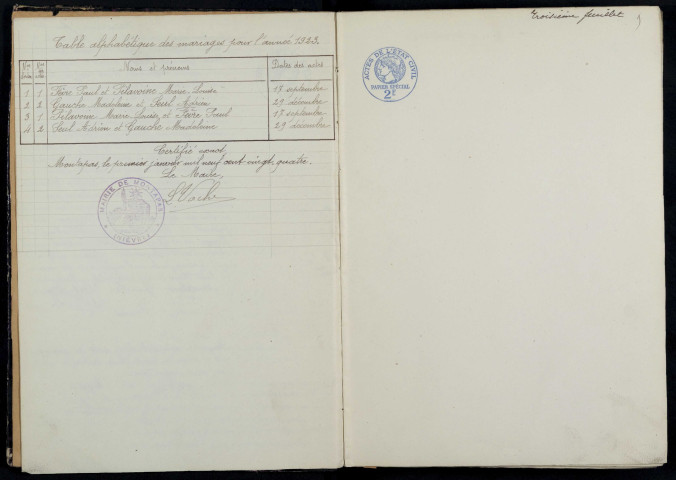 Table alphabétique des mariages pour l'année 1923.
Noms et prénoms Dates des actes
1 1 Fèvre Paul et Pélavoine Marie Louise 17 septembre
2 2 Gauche Madeleine et Seul Adrien 29 décembre
3 1 Pélavoine Marie Louise et Fèvre Paul 17 septembre
4 2 Seul Adrien et Gauche Madeleine 29 décembre
Certifié exact
Montapas, le premier janvier mil neuf cent vingt quatre.
Le Maire,
MAIRIE DE MONTAPAS
(NIÈVRE)
Troisième feuillet
ACTES DE L'ÉTAT CIVIL
PAPIER SPÉCIAL
2F